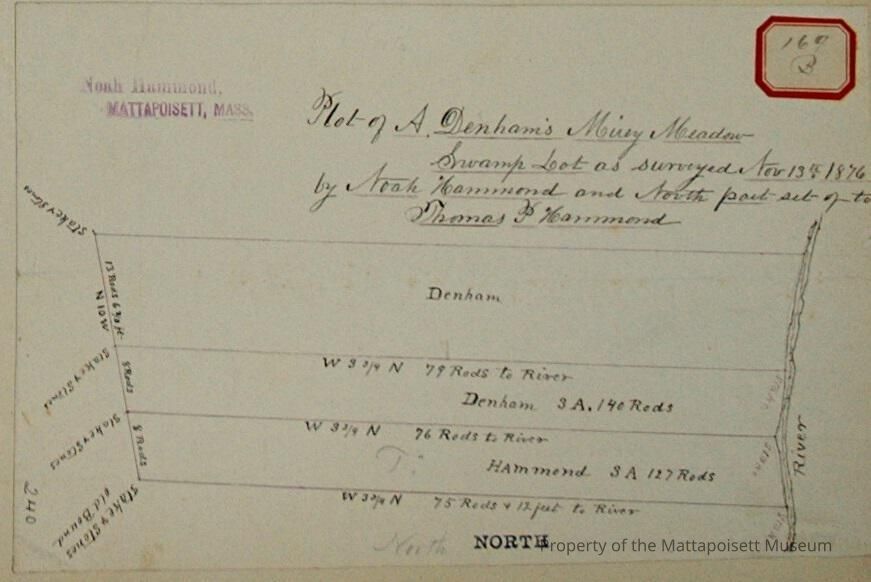 169
B
Noah Hammond,
MATTAPOISETT, MASS.
Plot of A. Denham's Mirey Meadow
Swamp Lot as surveyed Nov 13th 1876
by Noah Hammond and North part set of to
Thomas P Hammond
Stake & Stones
13 Rods 6 3/4 ft
N 10 W
Denham
Stake & Stones
8 Rods
W 3 3/4 N 79 Rods to River
Denham 3 A. 140 Rods
Stake
Stake & Stones
8 Rods
W 3 3/4 N 76 Rods to River
Hammond 3 A 127 Rods
Stake
River
Stake & Stones
old Bound
W 3 3/4 N 75 Rods & 12 feet to River
Stake
240
North
NORTH
Property of the Mattapoisett Museum